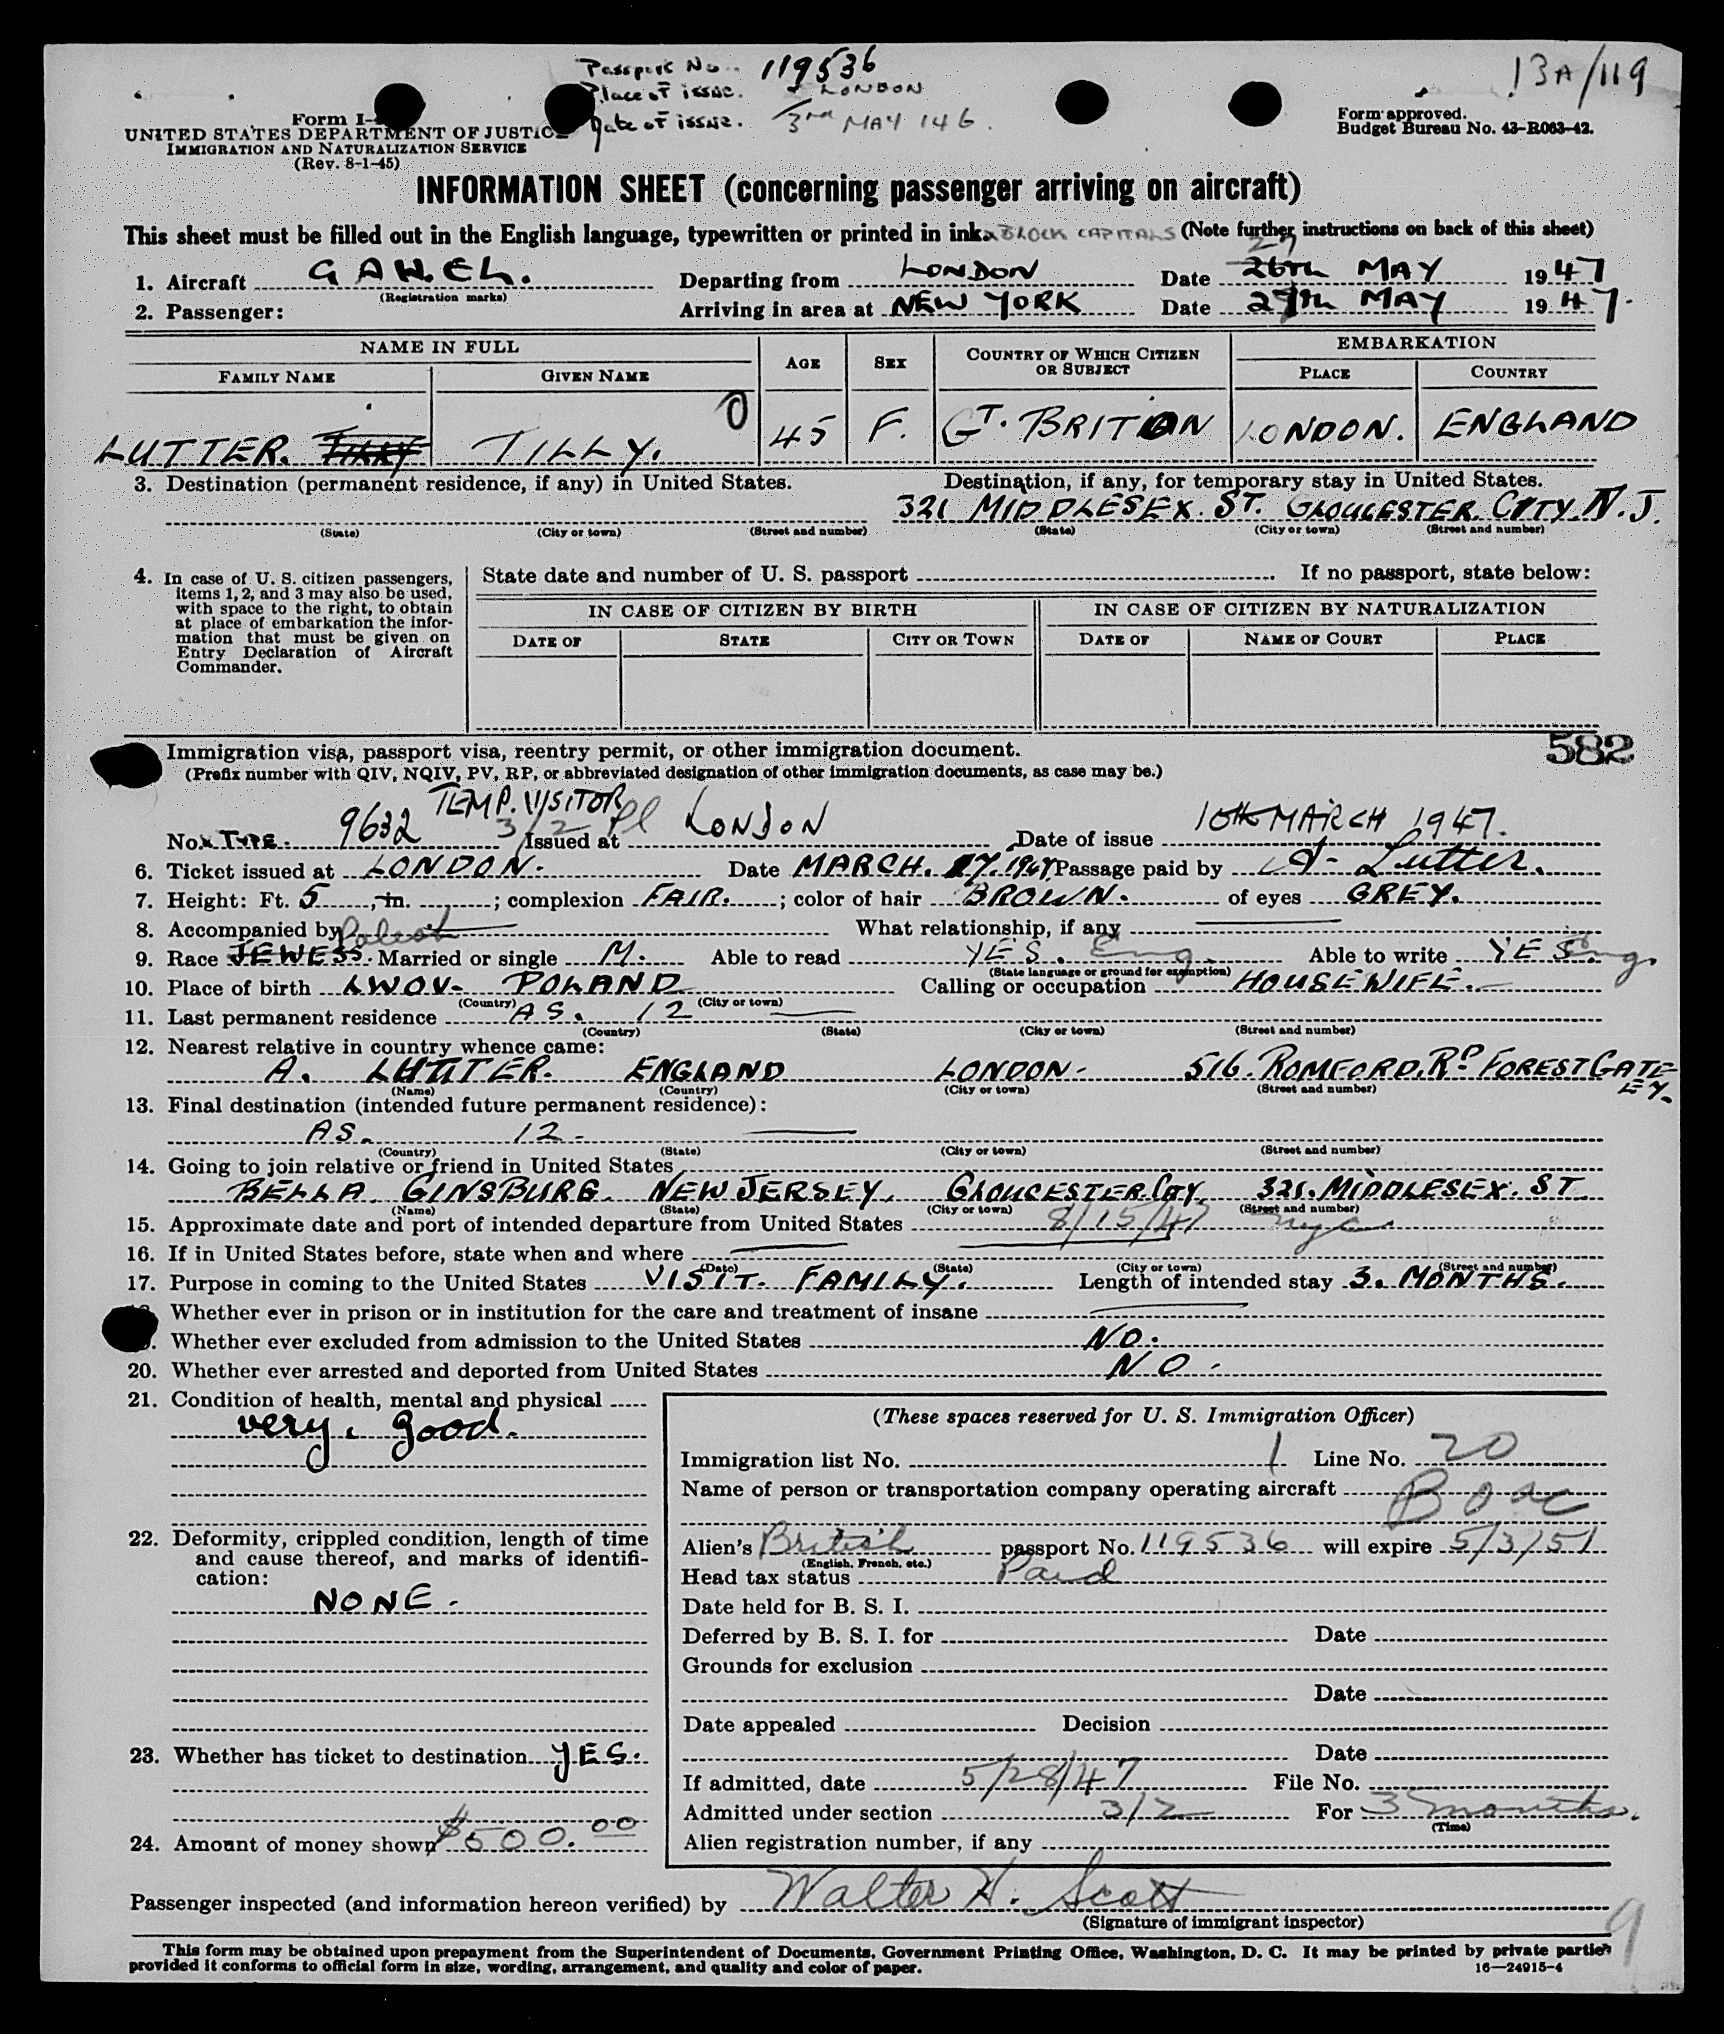 Passport No. 119536
Place of issue. LONDON
Date of issue. 3rd MAY 146.
13A/119
Form I-
UNITED STATES DEPARTMENT OF JUSTICE
IMMIGRATION AND NATURALIZATION SERVICE
(Rev. 8-1-45)
Form approved.
Budget Bureau No. 43-R063-42.
INFORMATION SHEET (concerning passenger arriving on aircraft)
This sheet must be filled out in the English language, typewritten or printed in ink. BLOCK CAPITALS (Note further instructions on back of this sheet)
1. Aircraft G AH.EL. Departing from LONDON Date 26th 27 MAY 1947
(Registration marks)
2. Passenger: Arriving in area at NEW YORK Date 27th MAY 1947.
NAME IN FULL
FAMILY NAME GIVEN NAME AGE SEX COUNTRY OF WHICH CITIZEN OR SUBJECT EMBARKATION
PLACE COUNTRY
LUTTER. TILLY TILLY. 45 F. GT. BRITAIN LONDON. ENGLAND
3. Destination (permanent residence, if any) in United States. Destination, if any, for temporary stay in United States.
321 MIDDLESEX. ST. GLOUCESTER CITY. N.J.
(State) (City or town) (Street and number) (State) (City or town) (Street and number)
4. In case of U. S. citizen passengers, items 1, 2, and 3 may also be used, with space to the right, to obtain at place of embarkation the information that must be given on Entry Declaration of Aircraft Commander.
State date and number of U. S. passport . If no passport, state below:
IN CASE OF CITIZEN BY BIRTH IN CASE OF CITIZEN BY NATURALIZATION
DATE OF STATE CITY OR TOWN DATE OF NAME OF COURT PLACE
582
Immigration visa, passport visa, reentry permit, or other immigration document.
(Prefix number with QIV, NQIV, PV, RP, or abbreviated designation of other immigration documents, as case may be.)
TEMP. VISITOR
No. & TYPE. 9632 3/2 Pl Issued at LONDON Date of issue 10th MARCH 1947.
6. Ticket issued at LONDON. Date MARCH. 27. 1947. Passage paid by A. Lutter.
7. Height: Ft. 5, in. ; complexion FAIR. ; color of hair BROWN. of eyes GREY.
8. Accompanied by What relationship, if any
9. Race JEWESS. Polish Married or single M. Able to read YES. Eng. Able to write YES. Eng.
(State language or ground for exemption)
10. Place of birth LWOV- POLAND Calling or occupation HOUSEWIFE.
(Country) (City or town)
11. Last permanent residence AS. 12
(Country) (State) (City or town) (Street and number)
12. Nearest relative in country whence came:
A. LUTTER. ENGLAND LONDON- 516. ROMFORD. RD. FOREST GATE E7.
(Name) (Country) (City or town) (Street and number)
13. Final destination (intended future permanent residence):
AS. 12.
(Country) (State) (City or town) (Street and number)
14. Going to join relative or friend in United States
BELLA. GINSBURG. NEW JERSEY. GLOUCESTER CITY. 321. MIDDLESEX. ST
(Name) (State) (City or town) (Street and number)
15. Approximate date and port of intended departure from United States 8/15/47 nyc
16. If in United States before, state when and where
(Date) (State) (City or town) (Street and number)
17. Purpose in coming to the United States VISIT. FAMILY. Length of intended stay 3. MONTHS.
Whether ever in prison or in institution for the care and treatment of insane
Whether ever excluded from admission to the United States NO.
20. Whether ever arrested and deported from United States NO.
21. Condition of health, mental and physical
very. good.
22. Deformity, crippled condition, length of time and cause thereof, and marks of identification:
NONE.
23. Whether has ticket to destination YES.
24. Amount of money shown $500.00
(These spaces reserved for U. S. Immigration Officer)
Immigration list No. 1 Line No. 20
Name of person or transportation company operating aircraft
BOAC
Alien's British passport No. 119536 will expire 5/3/51
(English, French, etc.)
Head tax status Paid
Date held for B. S. I.
Deferred by B. S. I. for Date
Grounds for exclusion
Date
Date appealed Decision
Date
If admitted, date 5/28/47 File No.
Admitted under section 3/2 For 3 months.
(Time)
Alien registration number, if any
Passenger inspected (and information hereon verified) by Walter H. Scott
(Signature of immigrant inspector)
9
This form may be obtained upon prepayment from the Superintendent of Documents, Government Printing Office, Washington, D. C. It may be printed by private parties
provided it conforms to official form in size, wording, arrangement, and quality and color of paper.
16—24915-4